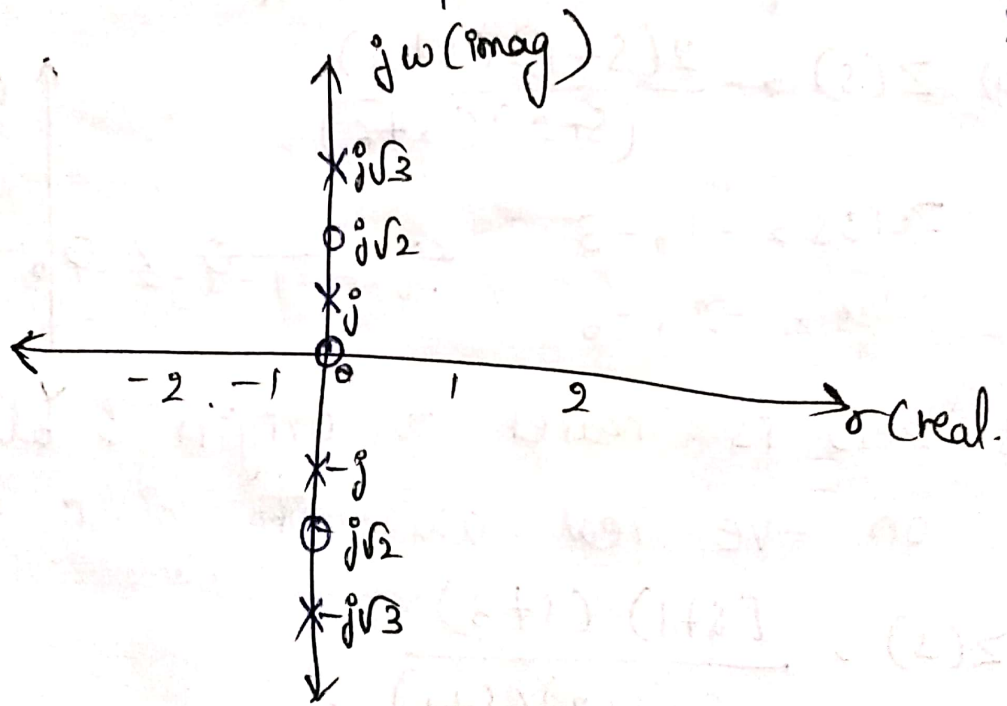 jω(imag)
j√3
j√2
j
-2 -1 0 1 2
σ(real.
-j
j√2
-j√3